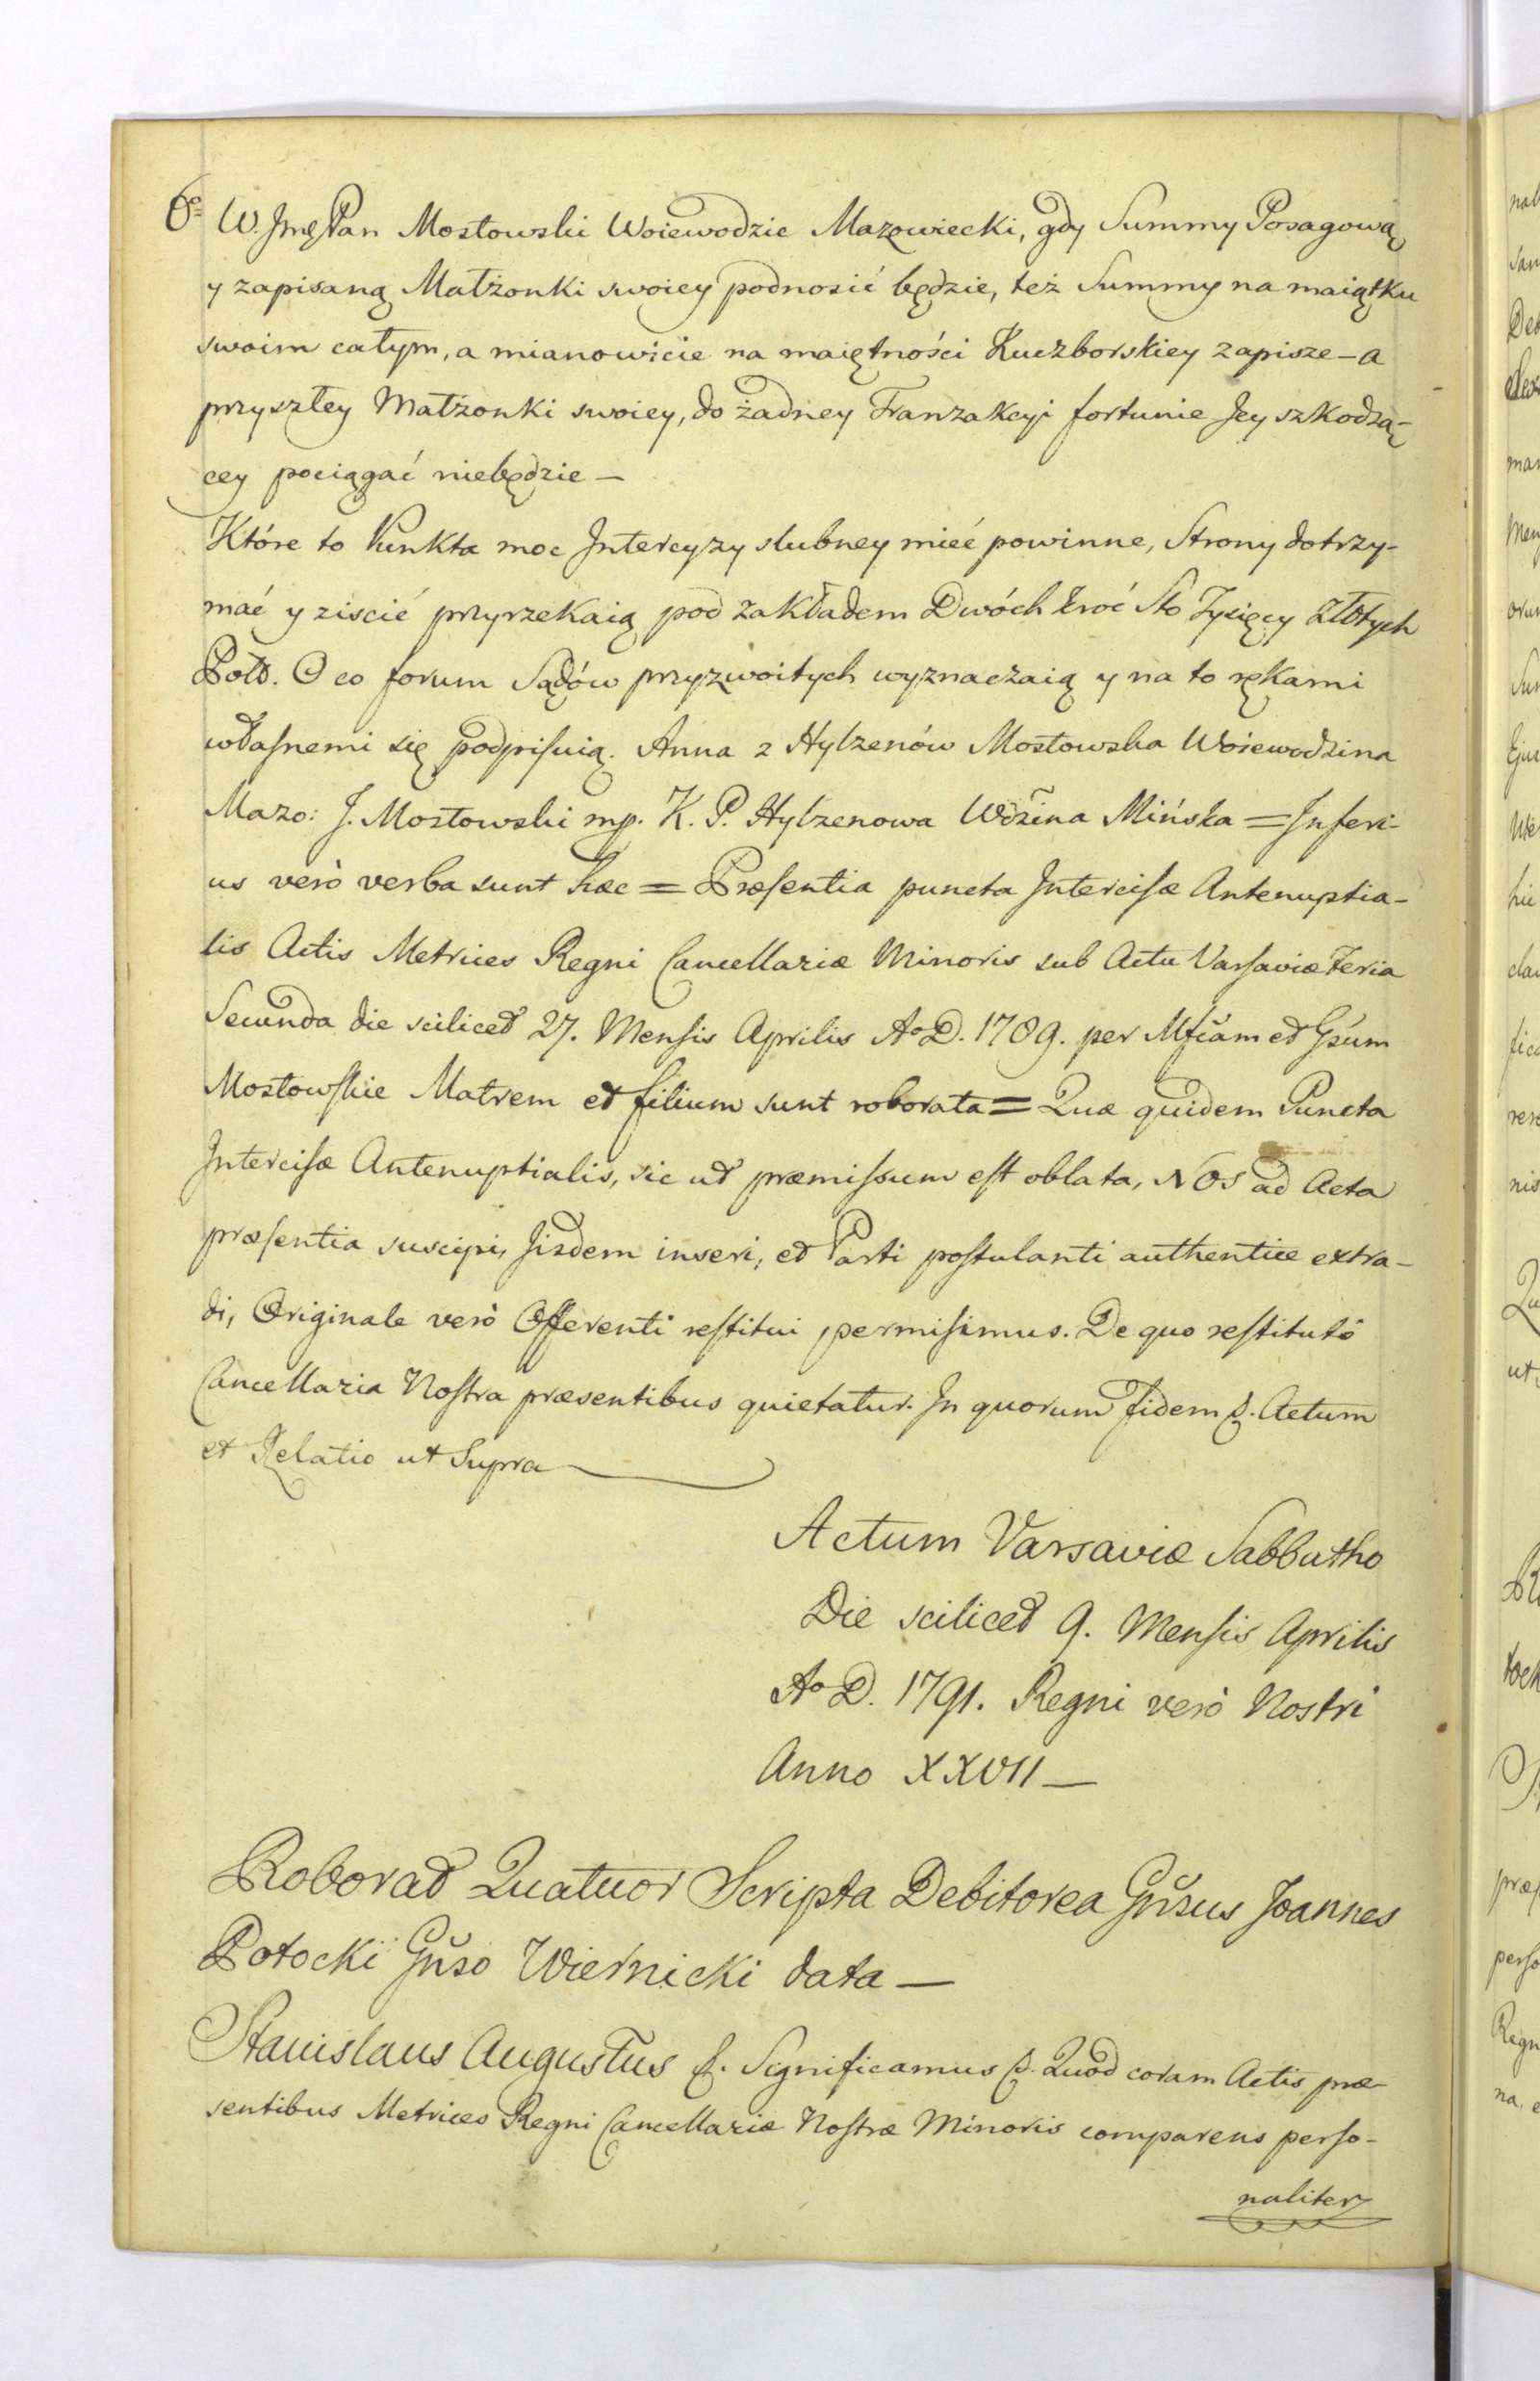 6º W. Jmę Pan Mostowski Woiewodzic Mazowiecki, gdy Summy Posagową
y zapisaną Małżonki swoiey podnosić będzie, też Summy na maiątku
swoim całym, a mianowicie na maiętności Kuczborskiey zapisze - a
przyszłey Małżonki swoiey, do żadney Tranzakcyi fortunie Jey szkodzą-
cey pociągać niebędzie —
Które to Punkta moc Intercyzy slubney mieć powinne, Strony dotrzy-
mać y ziscić przyrzekaią pod zakładem Dwóch kroć Sto Tysięcy Złotych
Pols. O co forum Sądów przyzwoitych wyznaczaią y na to rękami
własnemi się podpisuią. Anna z Hylzenów Mostowska Woiewodzina
Mazo: J. Mostowski mp. K. P. Hylzenowa Wdzina Mińska = Inferi-
us verò verba sunt hæc = Præsentia puncta Intercisæ Antenuptia-
lis Actis Metrices Regni Cancellariæ Minoris sub Actu Varsaviæ Feria
Secunda die scilicet 27. Mensis Aprilis Aº D. 1789. per Mficam et Gsum
Mostowskie Matrem et filium sunt roborata = Quæ quidem Puncta
Intercisæ Antenuptialis, sic ut præmissum est oblata, NOS ad Acta
præsentia suscipi, Jisdem inseri, et Parti postulanti authentice extra-
di, Originale verò Offerenti restitui permisimus. De quo restitutô
Cancellaria Nostra præsentibus quietatur. In quorum fidem &. Actum
et Relatio ut Supra
Actum Varsaviæ Sabbatho
Die scilicet 9. Mensis Aprilis
Aº D. 1791. Regni verò Nostri
Anno XXVII —
Roborat Quatuor Scripta Debitorea Gnsus Joannes
Potocki Gnso Wiernicki data —
Stanislaus Augustus &. Significamus &. Quod coram Actis præ-
sentibus Metrices Regni Cancellariæ Nostræ Minoris comparens perso-
naliter